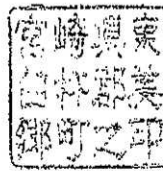 宮崎県東
臼杵郡東
郷町之印